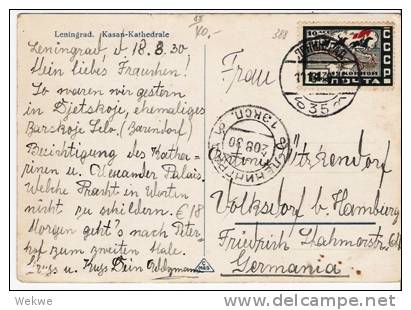 Leningrad. Kasan-Kathedrale
Leningrad, d 18.8.30
Mein liebes Frauchen!
So waren wir gestern
in Djetskoje, ehemaliges
Zarskoje Selo.
Besichtigung des Kathe-
rinen u. Alexander Palais.
Welche Pracht in Worten
nicht zu schildern. € 18
Morgen geht's nach Peter-
hof zum zweiten Male.
Gruss u. Kuss Dein
40,-
388
Frau
Volksdorf b. Hamburg
Friedrich
Germania
ПОЧТА
СССР
ЛЕНИНГРАД
1 ЭКСП.
20 8 30
Wekwe
www.delcampe.net